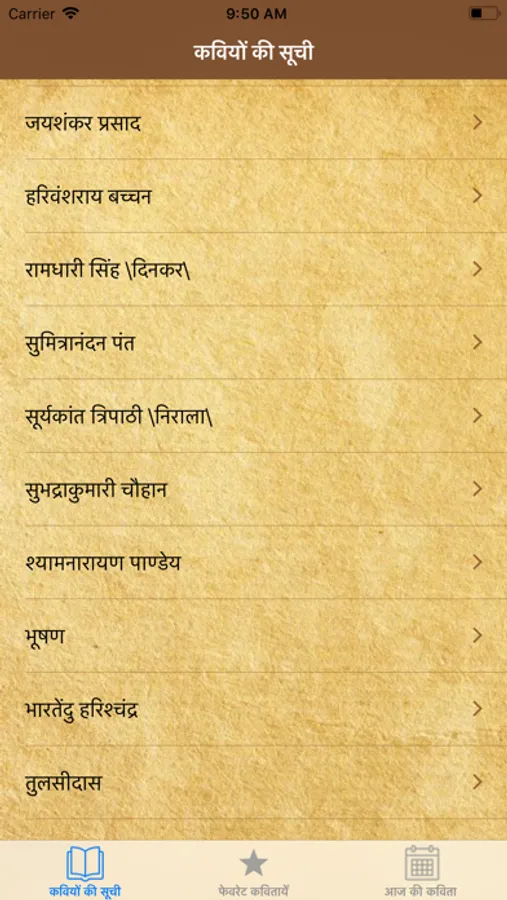 Carrier 9:50 AM
कवियों की सूची
जयशंकर प्रसाद
हरिवंशराय बच्चन
रामधारी सिंह \दिनकर\
सुमित्रानंदन पंत
सूर्यकांत त्रिपाठी \निराला\
सुभद्राकुमारी चौहान
श्यामनारायण पाण्डेय
भूषण
भारतेंदु हरिश्चंद्र
तुलसीदास
कवियों की सूची फेवरेट कवितायेँ आज की कविता